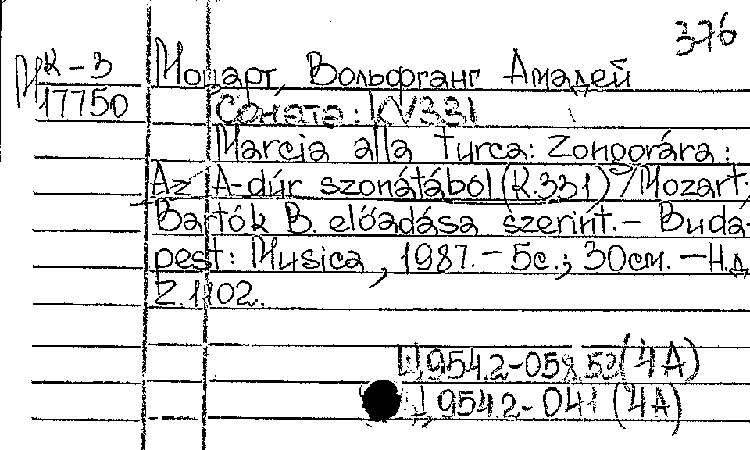 376
К-3 Моцарт, Вольфганг Амадей
17750 Соната: KV331
Marcia alla turca: Zongorára:
Az A-dúr szonátából (K.331) / Mozart:
Bartók B. előadása szerint. – Buda-
pest: Musica, 1987. – 5с.; 30см. – Н.д.
Z.1102.
Ц954.2-058.53(4А)
Ц954.2-041 (4А)